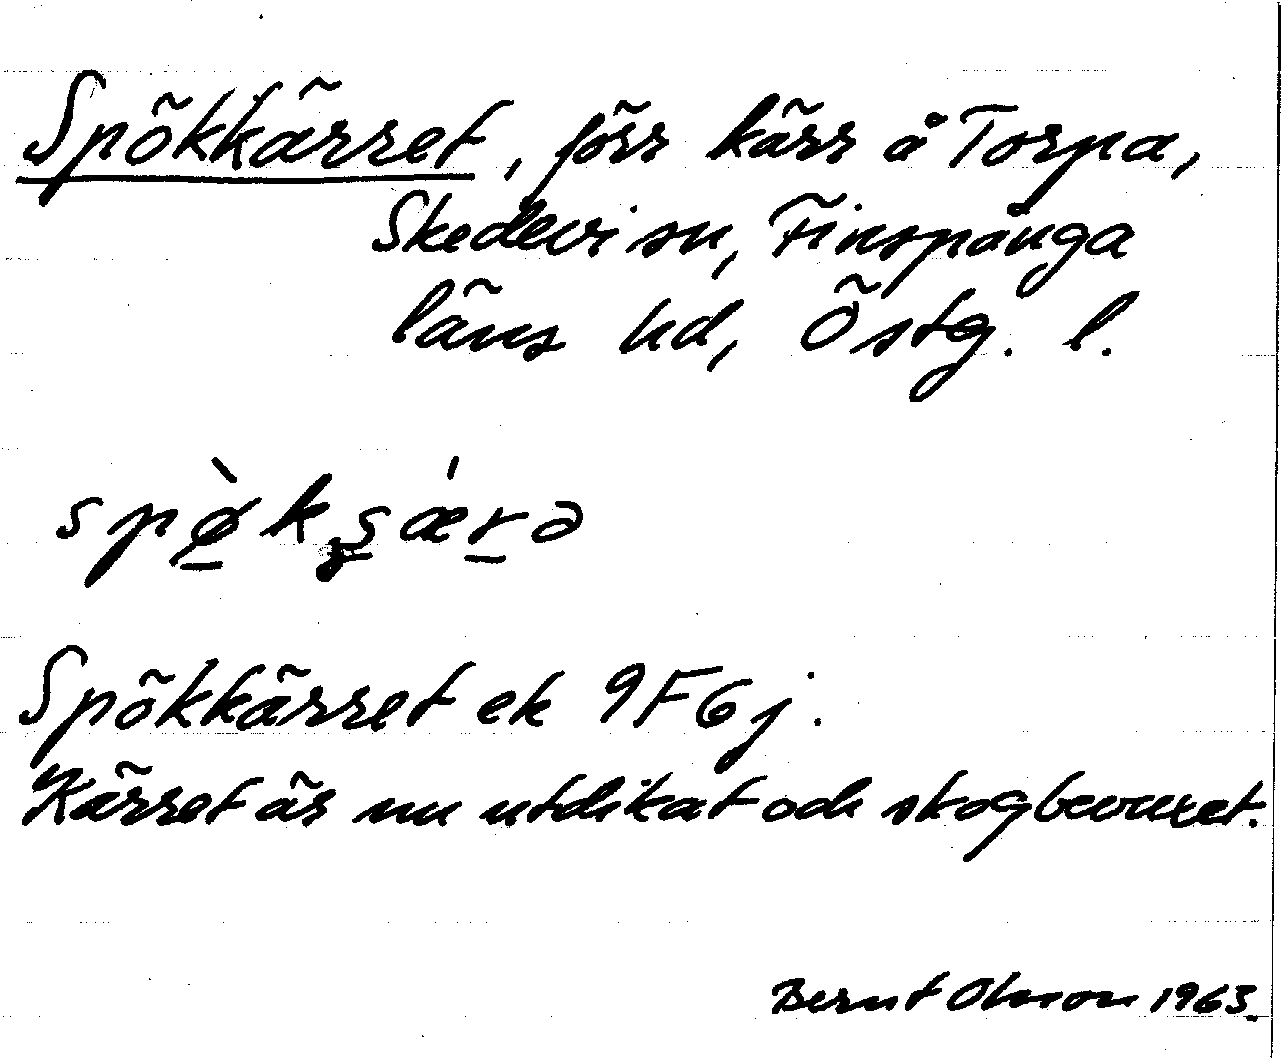 Spökkärret, förr kärr å Torpa,
Skedevi sn, Finspånga
läns hd, Östg. l.
spø̀kʂǽrə
Spökkärret ek 9F6j.
Kärret är nu utdikat och skogbevuxet.
Bernt Olsson 1963.